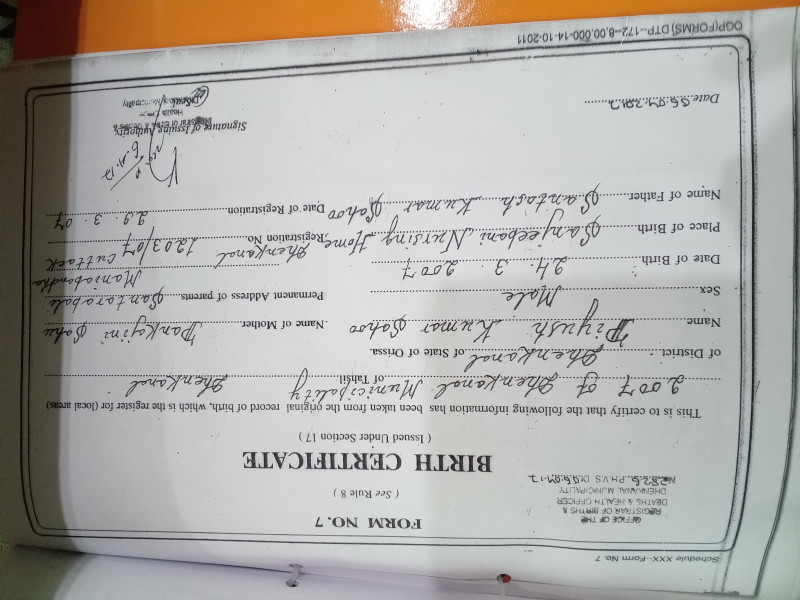 Schedule XXX--Form No. 7
OFFICE OF THE
REGISTRAR OF BIRTHS &
DEATHS & HEALTH OFFICER
DHENKANAL MUNICIPALITY
FORM NO. 7
( See Rule 8 )
BIRTH CERTIFICATE
( Issued Under Section 17 )
This is to certify that the following information has been taken from the original record of birth, which is the register for (local areas)
2007 of Dhenkanal Municipality of Tahsil Dhenkanal
of District Dhenkanal of State of Orissa.
Name Piyush Kumar Sahoo Name of Mother Pankajini Sahu
Sex Male Permanent Address of parents Santarapali
Maniabandha
Date of Birth 24. 3. 2007 Cuttack
Place of Birth Sanjeebani Nursing Home, Dhenkanal Registration No. 1203/07
Name of Father Santosh Kumar Sahoo Date of Registration 29. 3. 07
Signature of Issuing Authority
Date 06.04.2017
OGP(FORMS) DTP--172--8,00,000-14-10-2011